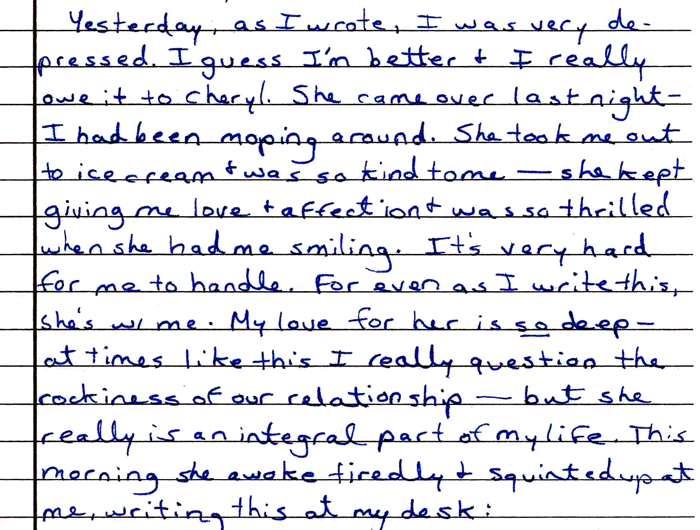 Yesterday, as I wrote, I was very de-
pressed. I guess I'm better + I really
owe it to Cheryl. She came over last night—
I had been moping around. She took me out
to ice cream + was so kind to me — she kept
giving me love + affection + was so thrilled
when she had me smiling. It's very hard
for me to handle. For even as I write this,
she's w/ me. My love for her is so deep—
at times like this I really question the
rockiness of our relationship — but she
really is an integral part of my life. This
morning she awoke tiredly + squinted up at
me, writing this at my desk: